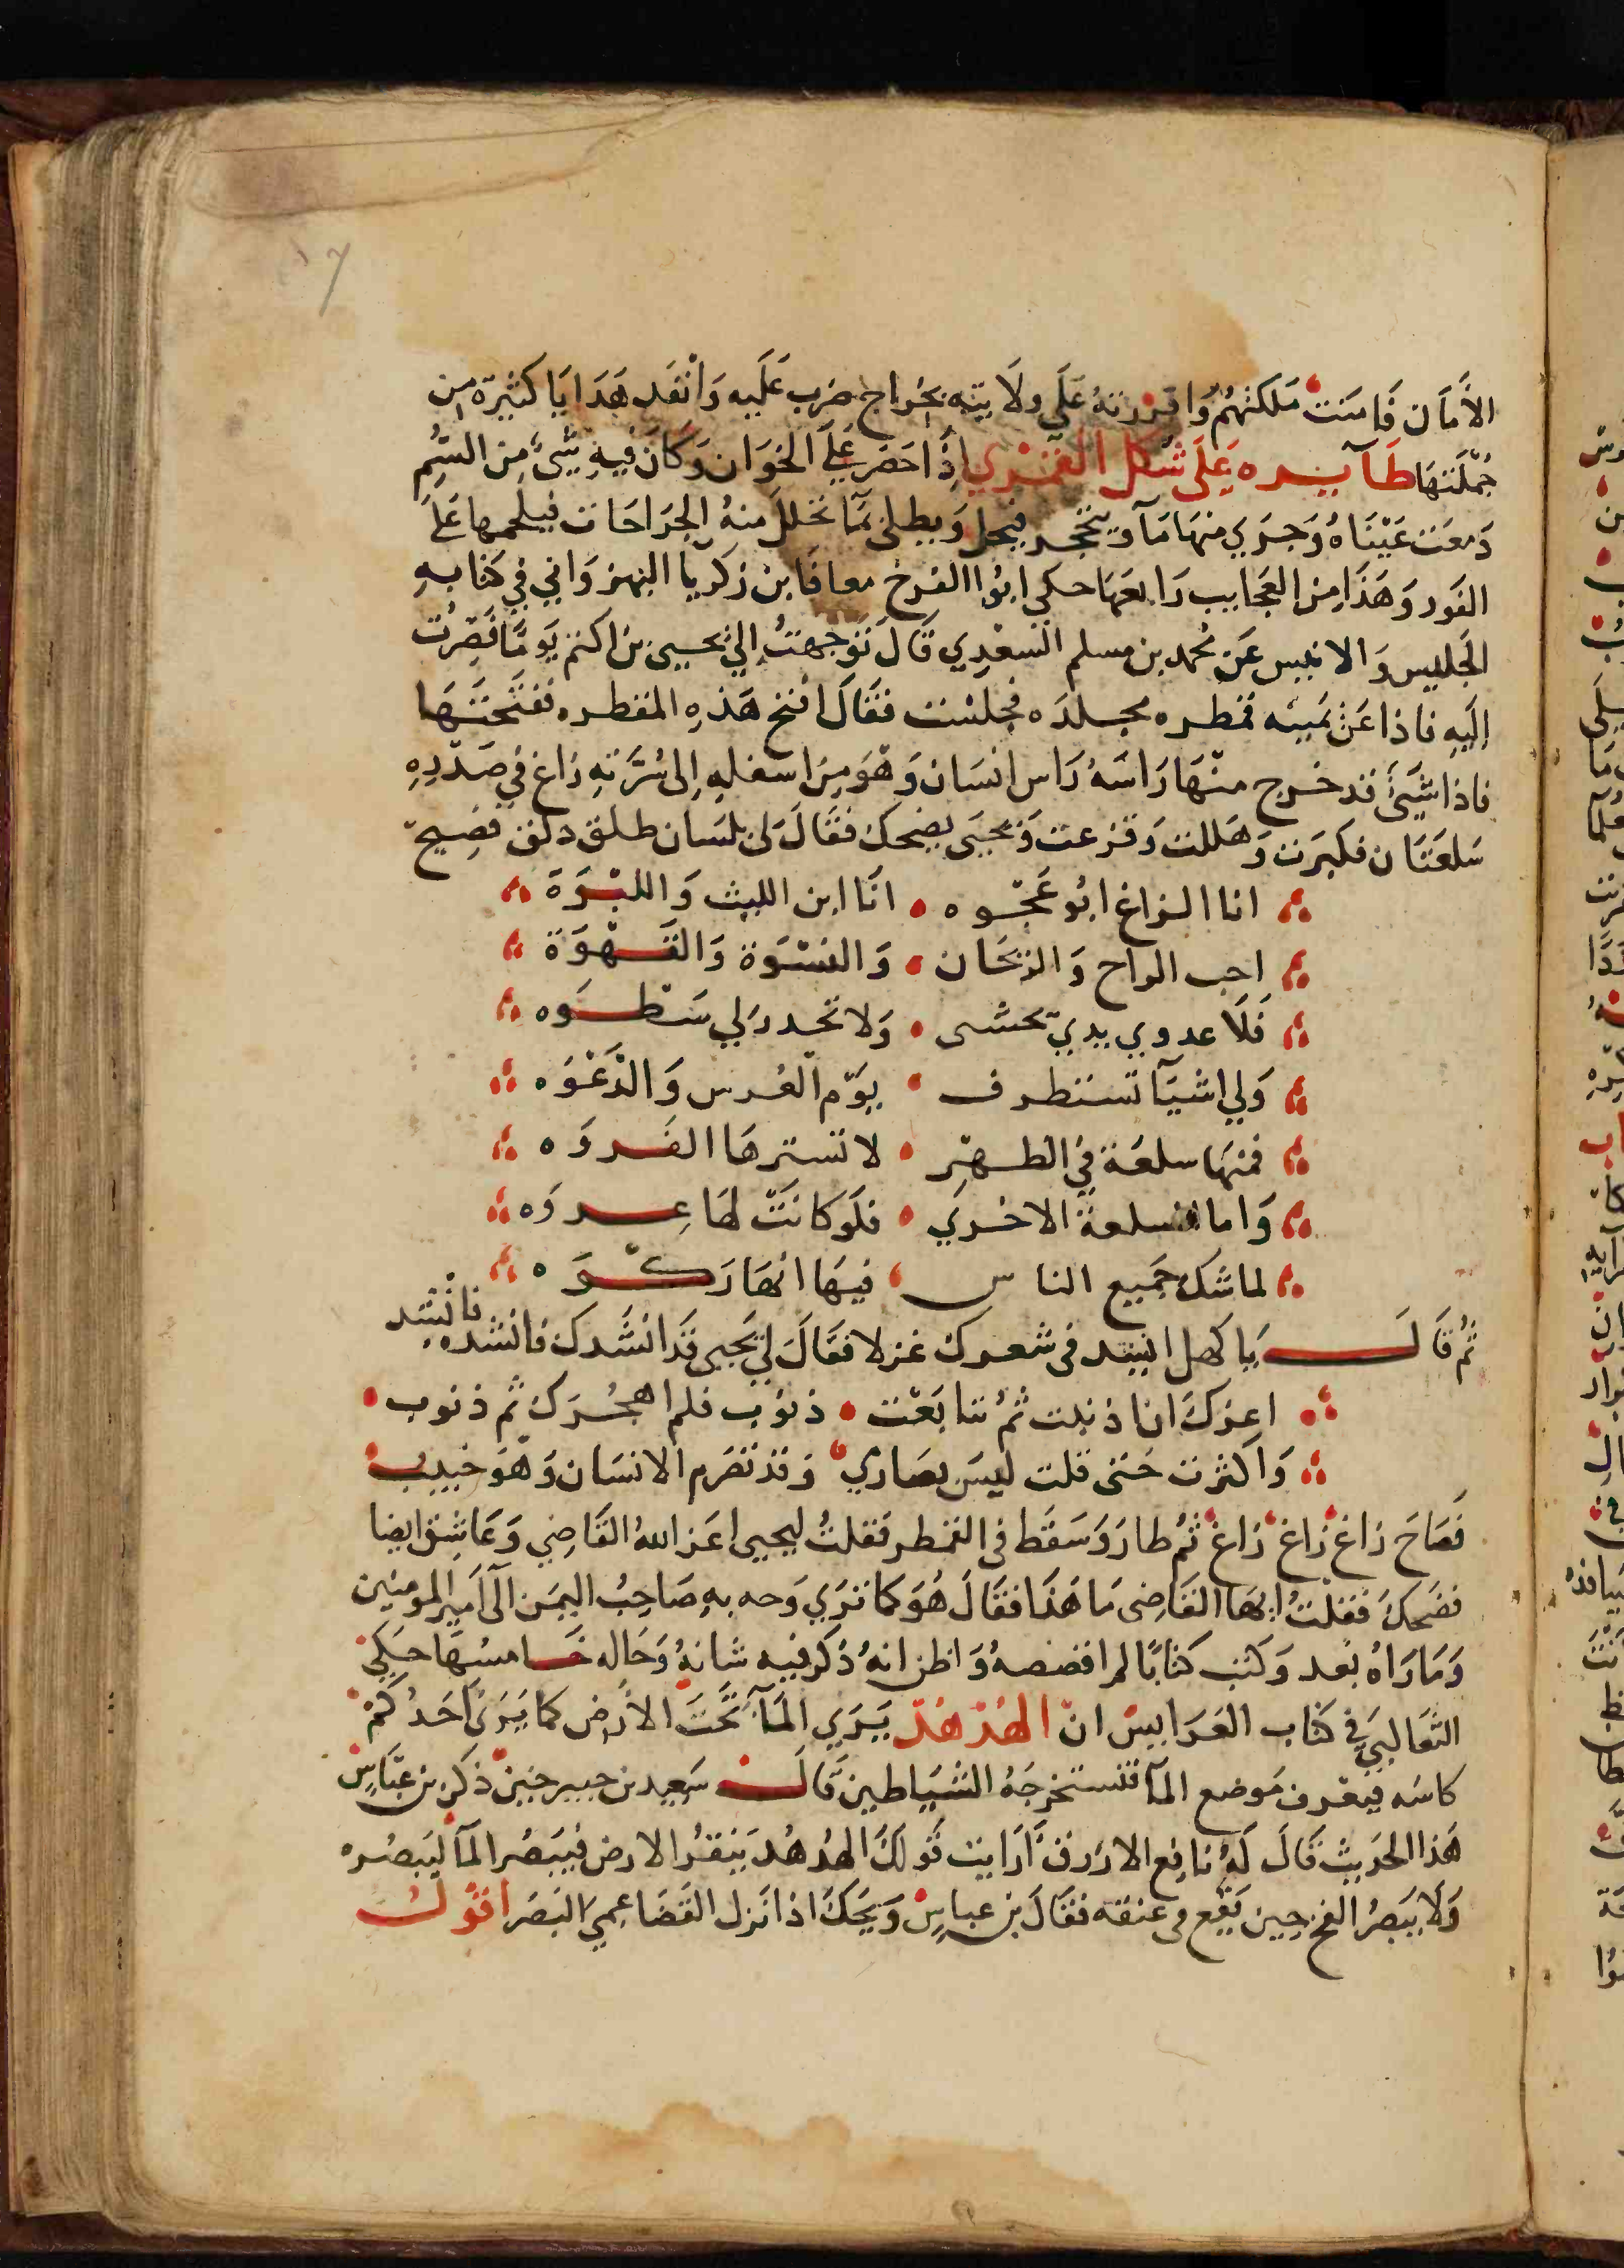 ١٧
الأمان فامنت ملكنهم واقررته على ولايته بخراج ضرب عليه وانفد هدايا كثيرة من
جملتها طآيره على شكل القمري إذا احضر على الخوان وكان فيه شيء من السم
دمعت عيناه وجري منها مآ ويتحجر فيحل ويطلى بما تحلل منه الجراحات فيلحمها على
الفور وهذا من العجايب رابعها حكي ابوا الفرخ معافا بن زكريا النهرواني في كتابه
الجليس والانيس عن محمد بن مسلم السعدي قال توجهت إلي يحيى بن اكتم يوما فصرت
إليه فاذا عن يمينه قمطره مجلده فجلست فقال افتح هذه المقطره ففتحتها
فاذا شيئ قد خرج منها راسه راس انسان وهو من اسفله إلى سرته زاغ في صدره
سلعتان فكبرت وهللت وفزعت ويحيى يضحك فقال لي بلسان طلق دلق فصيح
انا الزاغ ابو عجوه • انا ابن الليث واللبوة
احب الراح والريحان • والنشوة والقهوة
فلا عدوي يدي تخشى • ولا تحدر لي سطوه
ولي اشيآ تستطرف • يوم العرس والدعوه
فمنها سلعة في الظهر • لا تسترها الفروه
واما السلعة الاخري • فلو كانت لها عروه
لما شك جميع الناس • فيها انها ركوه
ثم قال يا كهل انشد في شعرك غزلا فقال لي يحيى قد انشدك فانشده فانشد
اعزك انا ذنبت ثم تتابعت • ذنوب فلم اهجرك ثم ذنوب •
واكثرت حتى قلت ليس بصاري • وقد تصرم الانسان وهو حبيب
فصاح زاغ زاغ زاغ ثم طار وسقط في القمطر فقلت ليحيى اعز الله القاضي وعاشق ايضا
فضحك فقلت ايها القاضي ما هذا فقال هو كما تري وجه به صاحب اليمن الى امير المومنين
وما راه بعد وكتب كتابا لم افضضه واظن انه ذكر فيه شانه وحاله خامسها حكي
الثعالبي في كتاب العرايس ان الهدهد يري المآ تحت الارض كما يرى احدكم
كاسه فيعرف موضع المآ فتستخرجه الشياطين قال سعيد بن جبير حين ذكر بن عباس
هذا الحديث قال له نافع الازرق أرايت قولك الهدهد ينقر الارض فيبصر المآ ليبصره
ولا يبصر الفخ حين يقع في عنقه فقال بن عباس ويحك اذا نزل القضا عمي البصر اقول